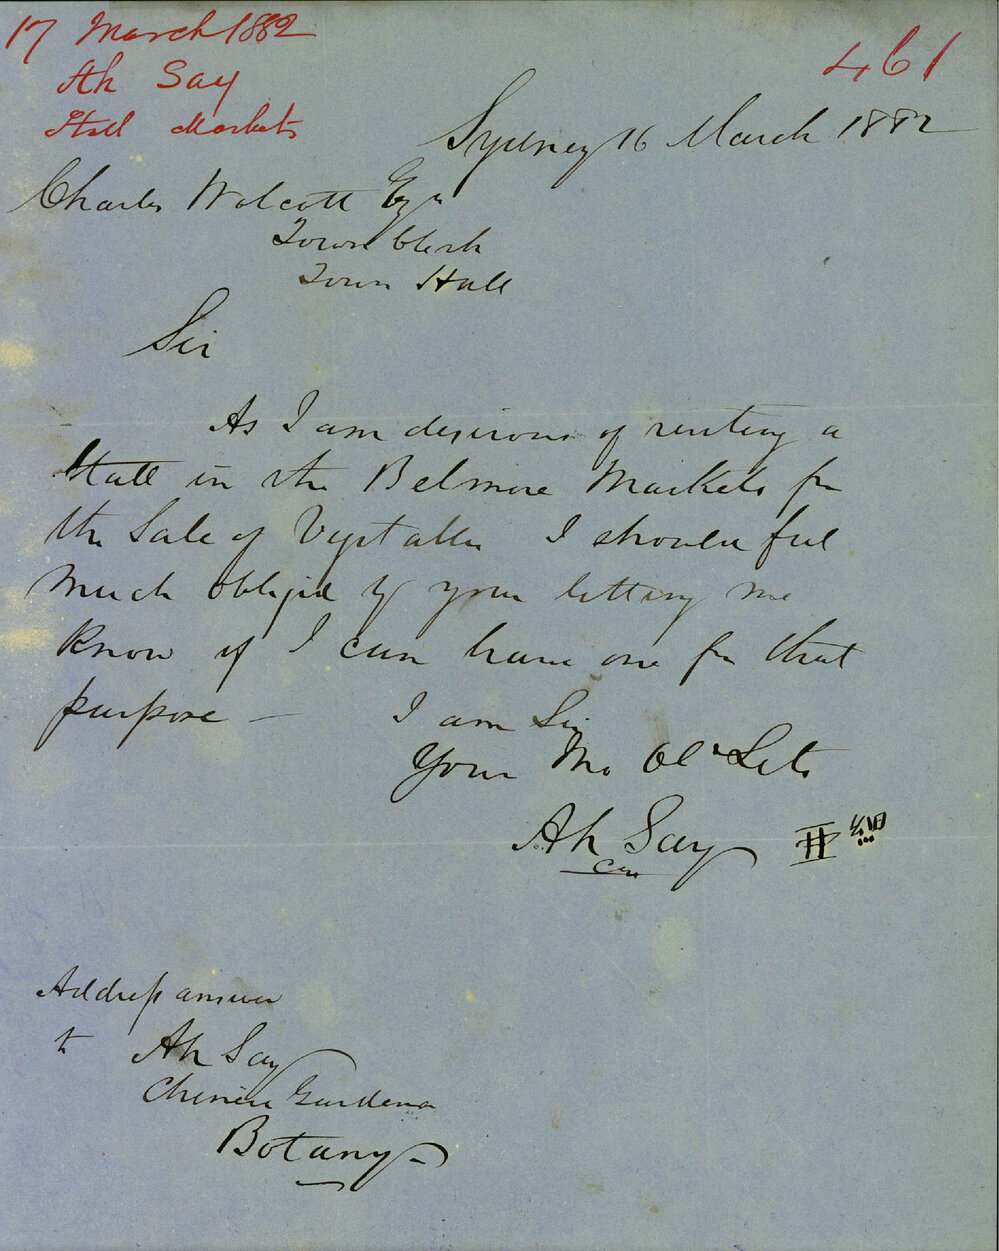 17 March 1882
Ah Say
Stall Markets
461
Sydney 16 March 1882
Charles Wolcott Esqr
Town Clerk
Town Hall
Sir
As I am desirous of renting a
Stall in the Belmore Markets for
the Sale of Vegetables I should feel
much obliged by your letting me
know if I can have one for that
purpose —
I am Sir
Your Mo Obt Svt
Ah Say
Address answer
to Ah Say
Chinese Gardener
Botany